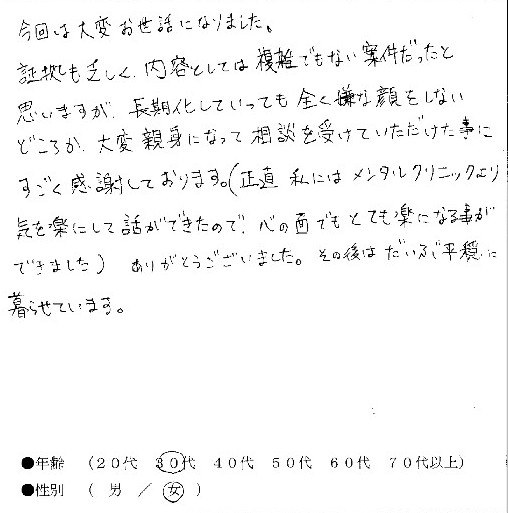 今回は大変お世話になりました。
証拠も乏しく、内容としては複雑でもない案件だったと
思いますが、長期化していっても全く嫌な顔をしない
どころか、大変親身になって相談を受けていただけた事に
すごく感謝しております。(正直 私には メンタルクリニックより
気を楽にして話ができたので、心の面でもとても楽になる事が
できました) ありがとうございました。その後はだいぶ平穏に
暮らせています。
●年齢 (20代 30代 40代 50代 60代 70代以上)
●性別 ( 男 / 女 )